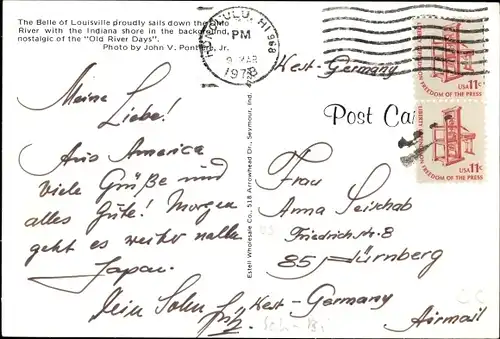 The Belle of Louisville proudly sails down the Ohio
River with the Indiana shore in the background,
nostalgic of the "Old River Days".
Photo by John V. Pontiere, Jr.
HONOLULU, HI 968
PM
9 MAR
1978
USA 11c
LIBERTY DEPENDS ON FREEDOM OF THE PRESS
USA 11c
LIBERTY DEPENDS ON FREEDOM OF THE PRESS
West-Germany
Post Card
Meine
Liebe!
Aus America
viele Grüße und
alles Gute! Morgen
geht es weiter nach
Japan.
Dein Sohn Fritz
Estell Wholesale Co., 518 Arrowhead Dr., Seymour, Ind.
Frau
Anna Seischab
Friedrichstr. 8
85 Nürnberg
West-Germany
Airmail